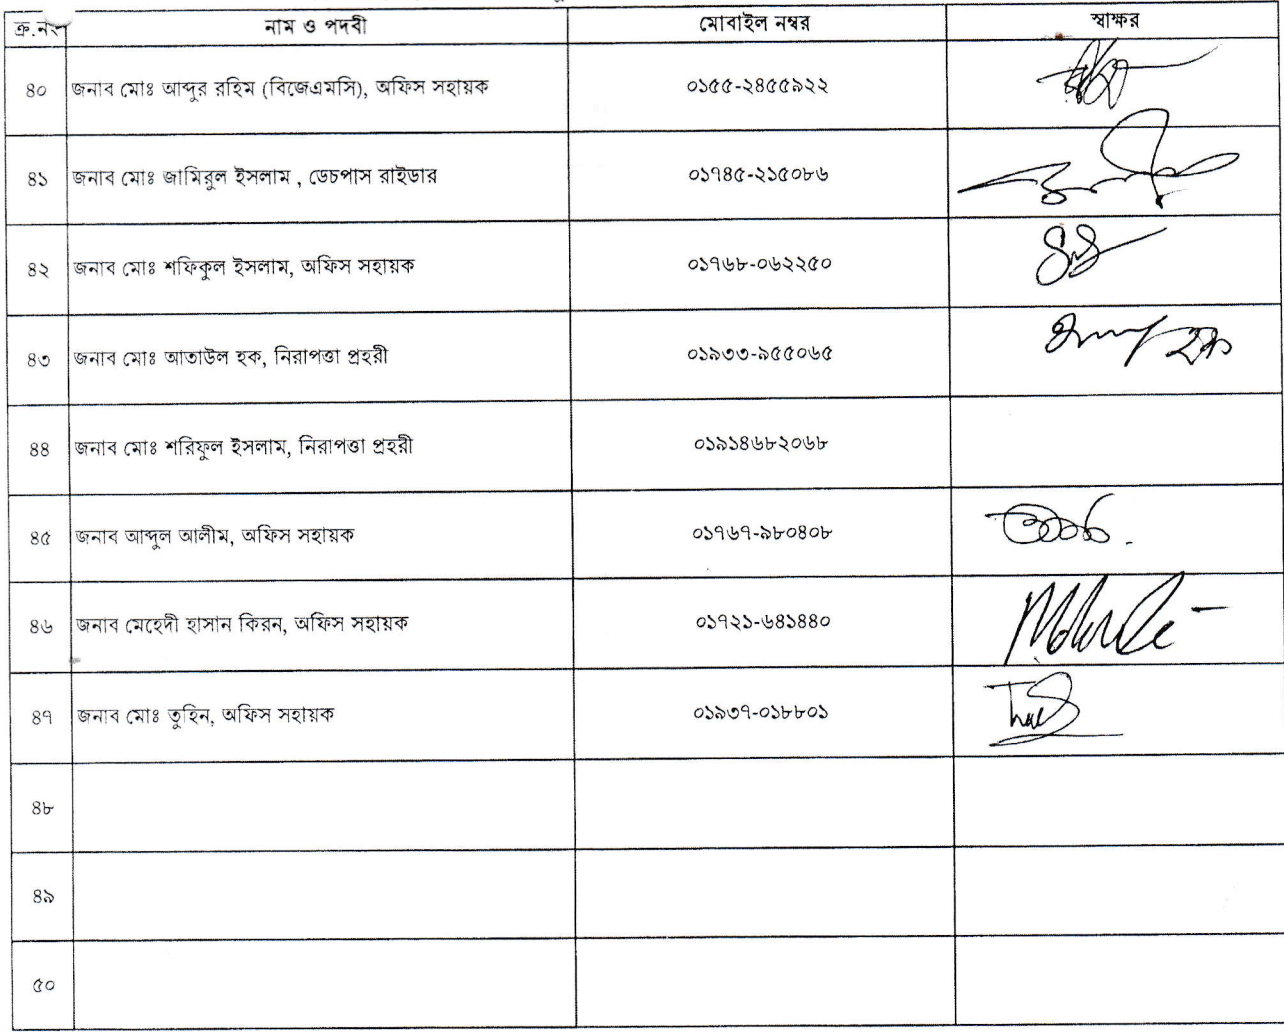 ক্র.নং নাম ও পদবী মোবাইল নম্বর স্বাক্ষর
৪০ জনাব মোঃ আব্দুর রহিম (বিজেএমসি), অফিস সহায়ক ০১৫৫-২৪৫৫৯২২
৪১ জনাব মোঃ জামিরুল ইসলাম , ডেচপাস রাইডার ০১৭৪৫-২১৫০৮৬
৪২ জনাব মোঃ শফিকুল ইসলাম, অফিস সহায়ক ০১৭৬৮-০৬২২৫০
৪৩ জনাব মোঃ আতাউল হক, নিরাপত্তা প্রহরী ০১৯৩৩-৯৫৫০৬৫
৪৪ জনাব মোঃ শরিফুল ইসলাম, নিরাপত্তা প্রহরী ০১৯১৪৬৮২০৬৮
৪৫ জনাব আব্দুল আলীম, অফিস সহায়ক ০১৭৬৭-৯৮০৪০৮
৪৬ জনাব মেহেদী হাসান কিরন, অফিস সহায়ক ০১৭২১-৬৪১৪৪০
৪৭ জনাব মোঃ তুহিন, অফিস সহায়ক ০১৯৩৭-০১৮৮০১
৪৮
৪৯
৫০